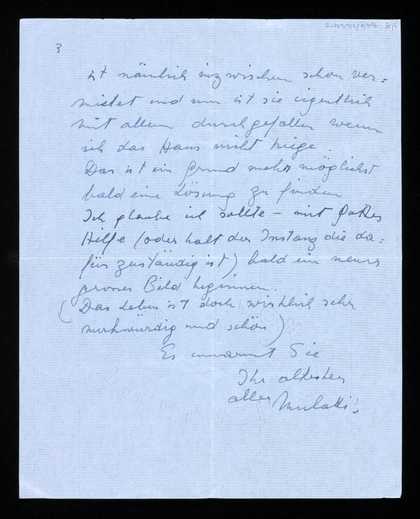 3
ist nämlich inzwischen schon ver=
mietet und nun ist sie eigentlich
mit allem durchgefallen wenn
ich das Haus nicht kriege.
Das ist ein Grund mehr möglichst
bald eine Lösung zu finden
Ich glaube ich sollte – mit Gottes
Hilfe (oder halt der Instanz die da=
für zuständig ist), bald ein neues
grosses Bild beginnen.
(Das Leben ist doch wirklich sehr
merkwürdig und schön)
Es umarmt Sie
Ihr
aller